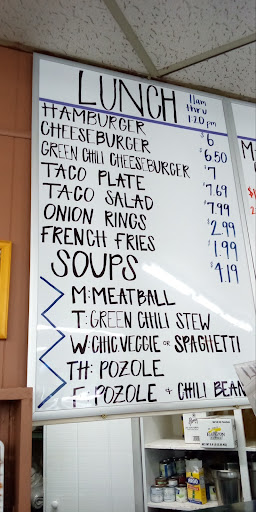 LUNCH 11am thru 1:20 pm
HAMBURGER $6
CHEESEBURGER $6.50
GREEN CHILI CHEESEBURGER $7
TACO PLATE $7.69
TACO SALAD $7.99
ONION RINGS $2.99
FRENCH FRIES $1.99
SOUPS $4.19
M: MEATBALL
T: GREEN CHILI STEW
W: CHIC VEGGIE OR SPAGHETTI
TH: POZOLE
F: POZOLE + CHILI BEAN